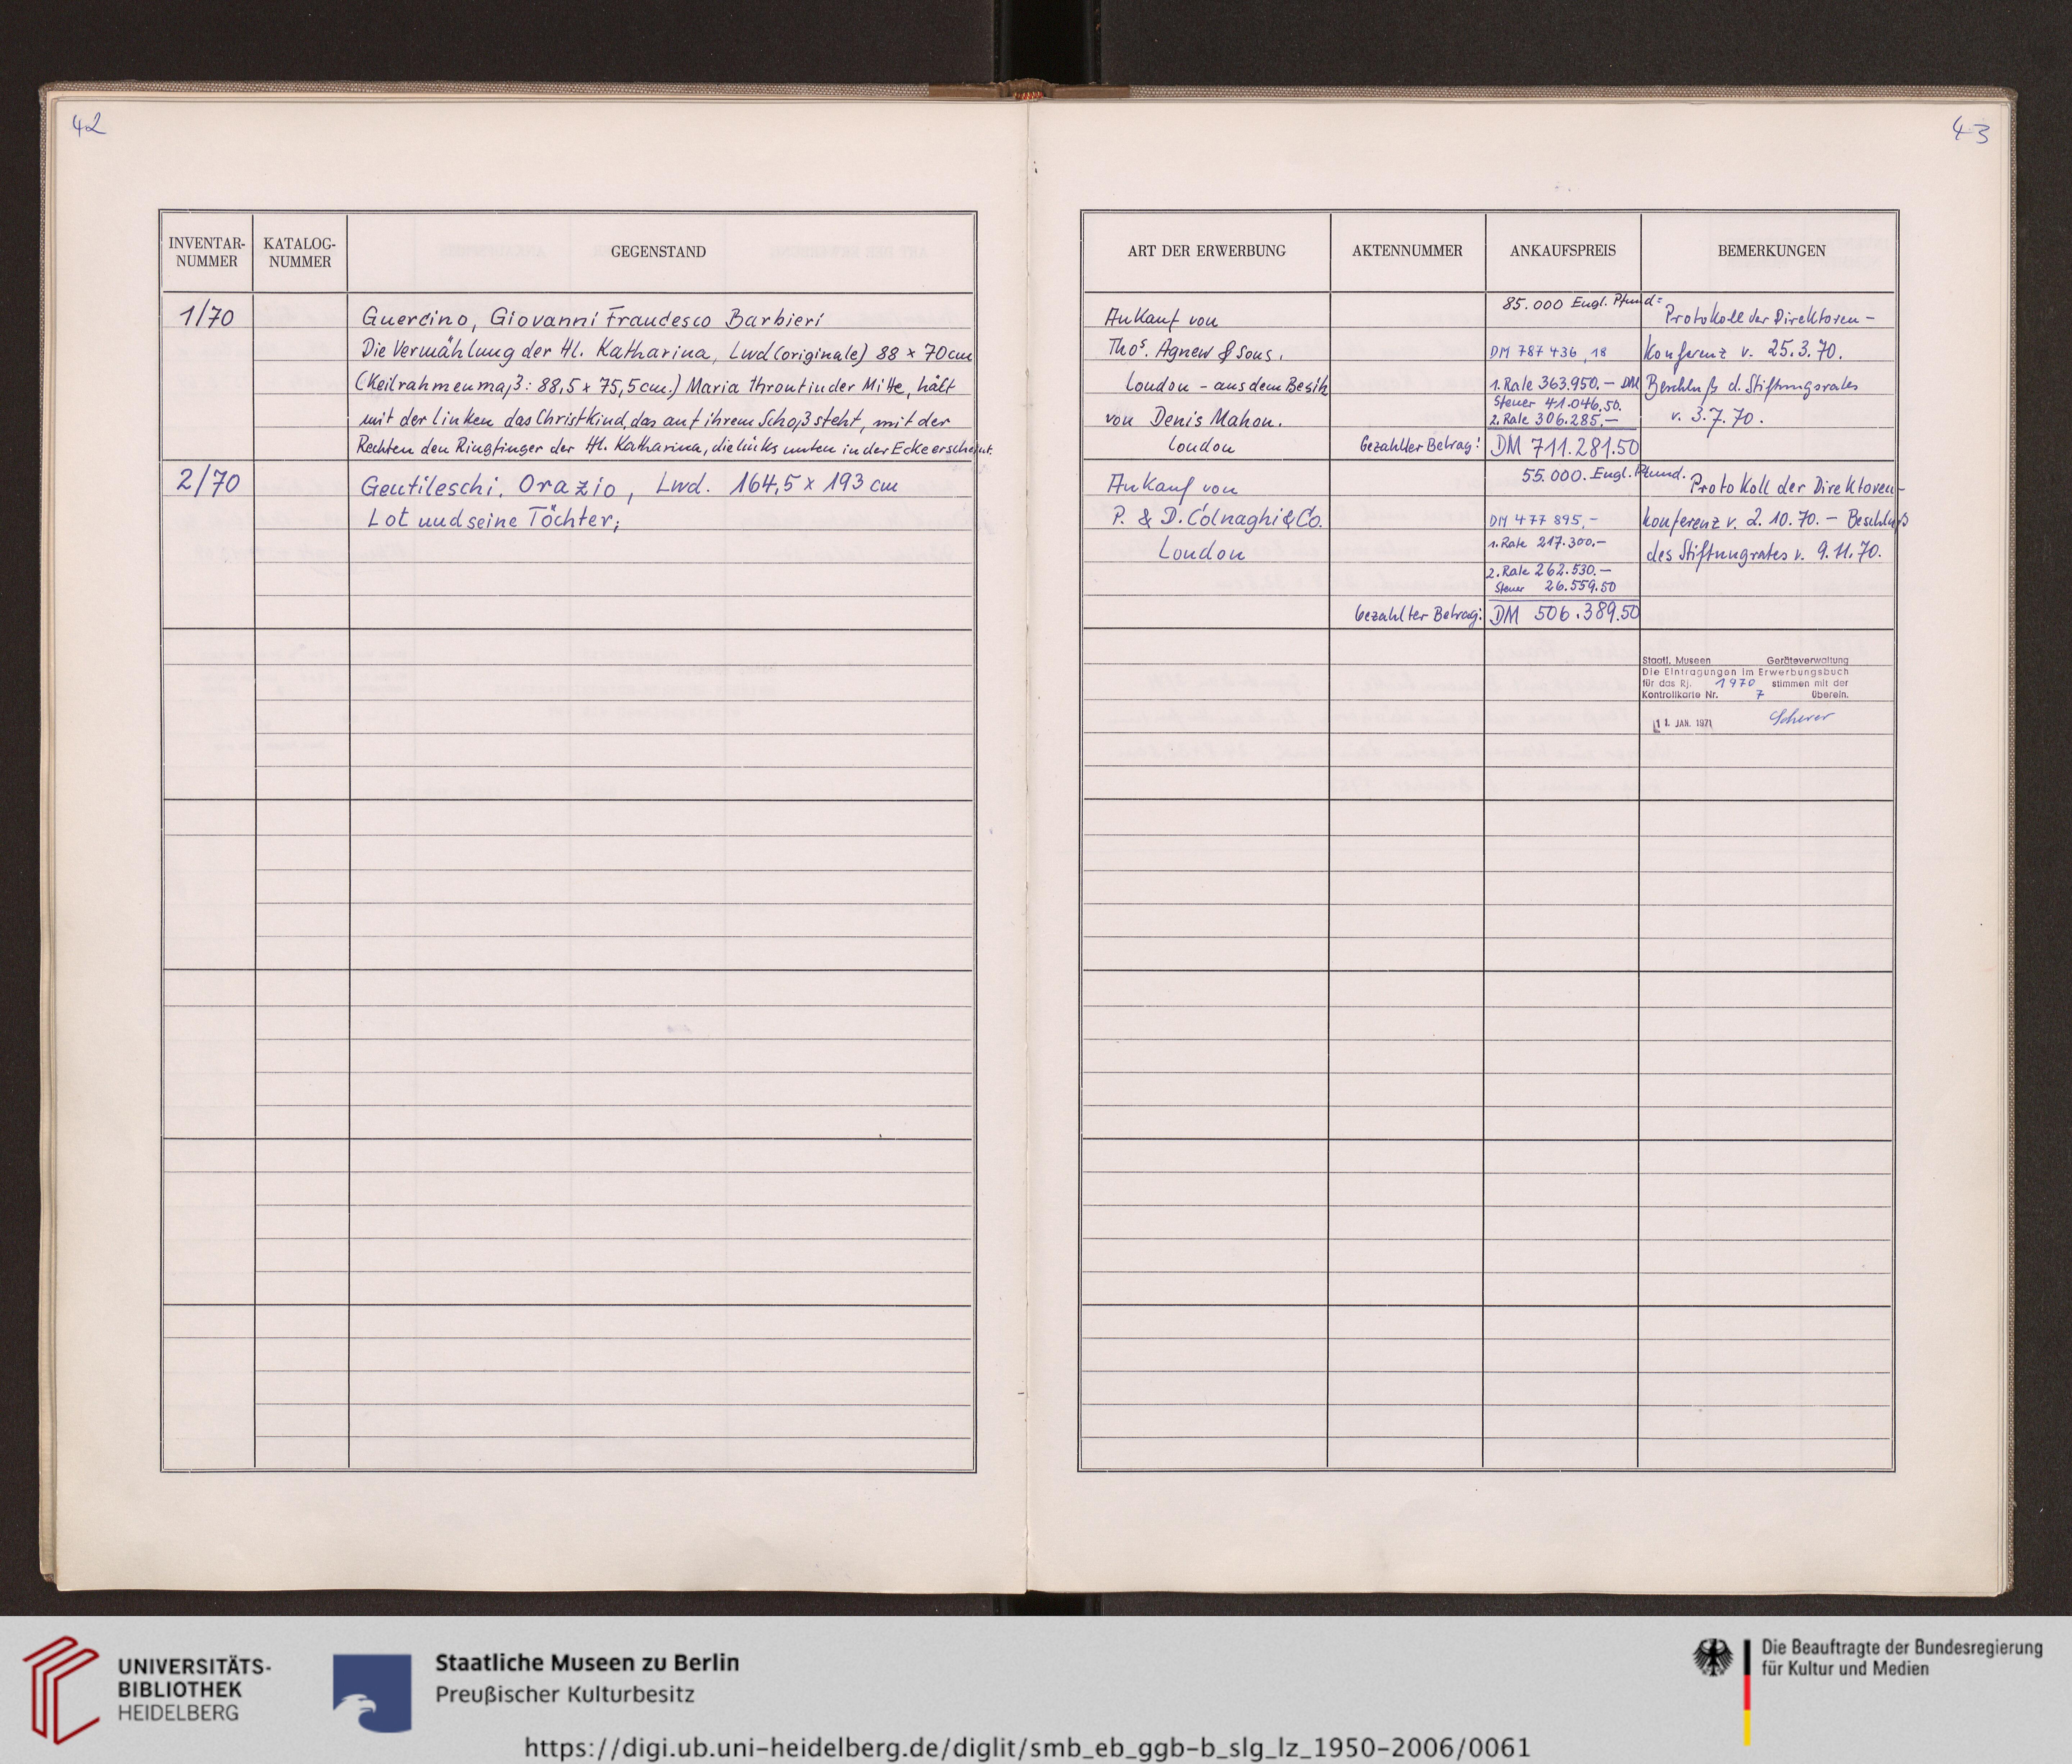 42
INVENTAR-
NUMMER
KATALOG-
NUMMER
GEGENSTAND
1/70
Guercino, Giovanni Francesco Barbieri
Die Vermählung der Hl. Katharina, Lwd (originale) 88 x 70 cm
(Keilrahmenmaß: 88,5 x 75,5 cm.) Maria thront in der Mitte, hält
mit der linken das Christkind, das auf ihrem Schoß steht, mit der
Rechten den Ringfinger der Hl. Katharina, die links unten in der Ecke erscheint.
2/70
Gentileschi, Orazio, Lwd. 164,5 x 193 cm
Lot und seine Töchter;
43
ART DER ERWERBUNG
AKTENNUMMER
ANKAUFSPREIS
BEMERKUNGEN
Ankauf von
Thos. Agnew & Sons,
London - aus dem Besitz
von Denis Mahon.
London
Bezahlter Betrag:
85.000 Engl. Pfund =
DM 787 436,18
1. Rate 363.950.- DM
Steuer 41.046,50.
2. Rate 306.285,-
DM 711.281.50
Protokoll der Direktoren-
konferenz v. 25.3.70.
Beschluß d. Stiftungsrates
v. 3.7.70.
Ankauf von
P. & D. Colnaghi & Co.
London
bezahlter Betrag:
55.000. Engl. Pfund.
DM 477 895,-
1. Rate 217.300.-
2. Rate 262.530.-
Steuer 26.559.50
DM 506.389.50
Protokoll der Direktoren-
konferenz v. 2.10.70. - Beschluß
des Stiftungrates v. 9.11.70.
Staatl. Museen Geräteverwaltung
Die Eintragungen im Erwerbungsbuch
für das Rj. 1970 stimmen mit der
Kontrollkarte Nr. 7 überein.
11. JAN. 1971
UNIVERSITÄTS-
BIBLIOTHEK
HEIDELBERG
Staatliche Museen zu Berlin
Preußischer Kulturbesitz
Die Beauftragte der Bundesregierung
für Kultur und Medien
https://digi.ub.uni-heidelberg.de/diglit/smb_eb_ggb-b_slg_lz_1950-2006/0061